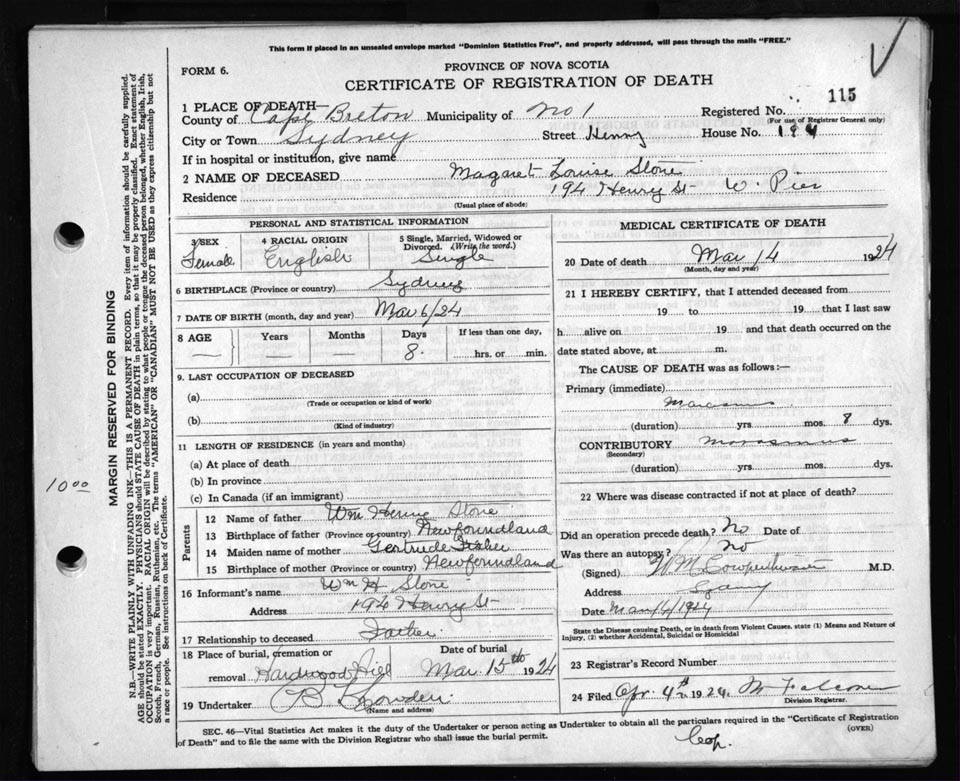 This form if placed in an unsealed envelope marked "Dominion Statistics Free", and properly addressed, will pass through the mails "FREE."
FORM 6.
PROVINCE OF NOVA SCOTIA
CERTIFICATE OF REGISTRATION OF DEATH
115
1 PLACE OF DEATH—
County of Cape Breton Municipality of No 1 Registered No.
(For use of Registrar General only)
City or Town Sydney Street Henry House No. 194
If in hospital or institution, give name
2 NAME OF DECEASED Margaret Louise Stone
Residence 194 Henry St W. Pier
(Usual place of abode)
PERSONAL AND STATISTICAL INFORMATION
3 SEX Female
4 RACIAL ORIGIN English
5 Single, Married, Widowed or Divorced. (Write the word.) Single
6 BIRTHPLACE (Province or country) Sydney
7 DATE OF BIRTH (month, day and year) Mar 6/24
8 AGE Years Months Days If less than one day,
— — — 8. hrs. or min.
9. LAST OCCUPATION OF DECEASED
(a)
(Trade or occupation or kind of work)
(b)
(Kind of industry)
11 LENGTH OF RESIDENCE (in years and months)
(a) At place of death
(b) In province
(c) In Canada (if an immigrant)
Parents
12 Name of father Wm Henry Stone
13 Birthplace of father (Province or country) Newfoundland
14 Maiden name of mother Gertrude Fisher
15 Birthplace of mother (Province or country) Newfoundland
16 Informant's name Wm H Stone
Address 194 Henry St
17 Relationship to deceased Father
18 Place of burial, cremation or removal Hardwood Hill
Date of burial Mar. 15th 1924
19 Undertaker
(Name and address)
MEDICAL CERTIFICATE OF DEATH
20 Date of death Mar 14 1924
(Month, day and year)
21 I HEREBY CERTIFY, that I attended deceased from
19 to 19 that I last saw
h alive on 19 and that death occurred on the
date stated above, at m.
The CAUSE OF DEATH was as follows:—
Primary (immediate) Marasmus
(duration) yrs. mos. 8 dys.
CONTRIBUTORY Marasmus
(Secondary)
(duration) yrs. mos. dys.
22 Where was disease contracted if not at place of death?
Did an operation precede death? No Date of
Was there an autopsy? No
(Signed) M.D.
Address Sydney
Date
State the Disease causing Death, or in death from Violent Causes, state (1) Means and Nature of Injury, (2) whether Accidental, Suicidal or Homicidal
23 Registrar's Record Number
24 Filed Apr. 4th 1924. M Falconer
Division Registrar.
SEC. 46—Vital Statistics Act makes it the duty of the Undertaker or person acting as Undertaker to obtain all the particulars required in the "Certificate of Registration
of Death" and to file the same with the Division Registrar who shall issue the burial permit.
(OVER)
MARGIN RESERVED FOR BINDING
N.B.—WRITE PLAINLY WITH UNFADING INK—THIS IS A PERMANENT RECORD. Every item of information should be carefully supplied.
AGE should be stated EXACTLY. PHYSICIANS should STATE CAUSE OF DEATH in plain terms, so that it may be properly classified. Exact statement of
OCCUPATION is very important. RACIAL ORIGIN will be described by stating to what people or tongue the deceased person belonged, whether English, Irish,
Scotch, French, German, Russian, Ruthenian, etc. The terms "AMERICAN" OR "CANADIAN" MUST NOT BE USED as they express citizenship but not
a race or people. See instructions on back of Certificate.
1000